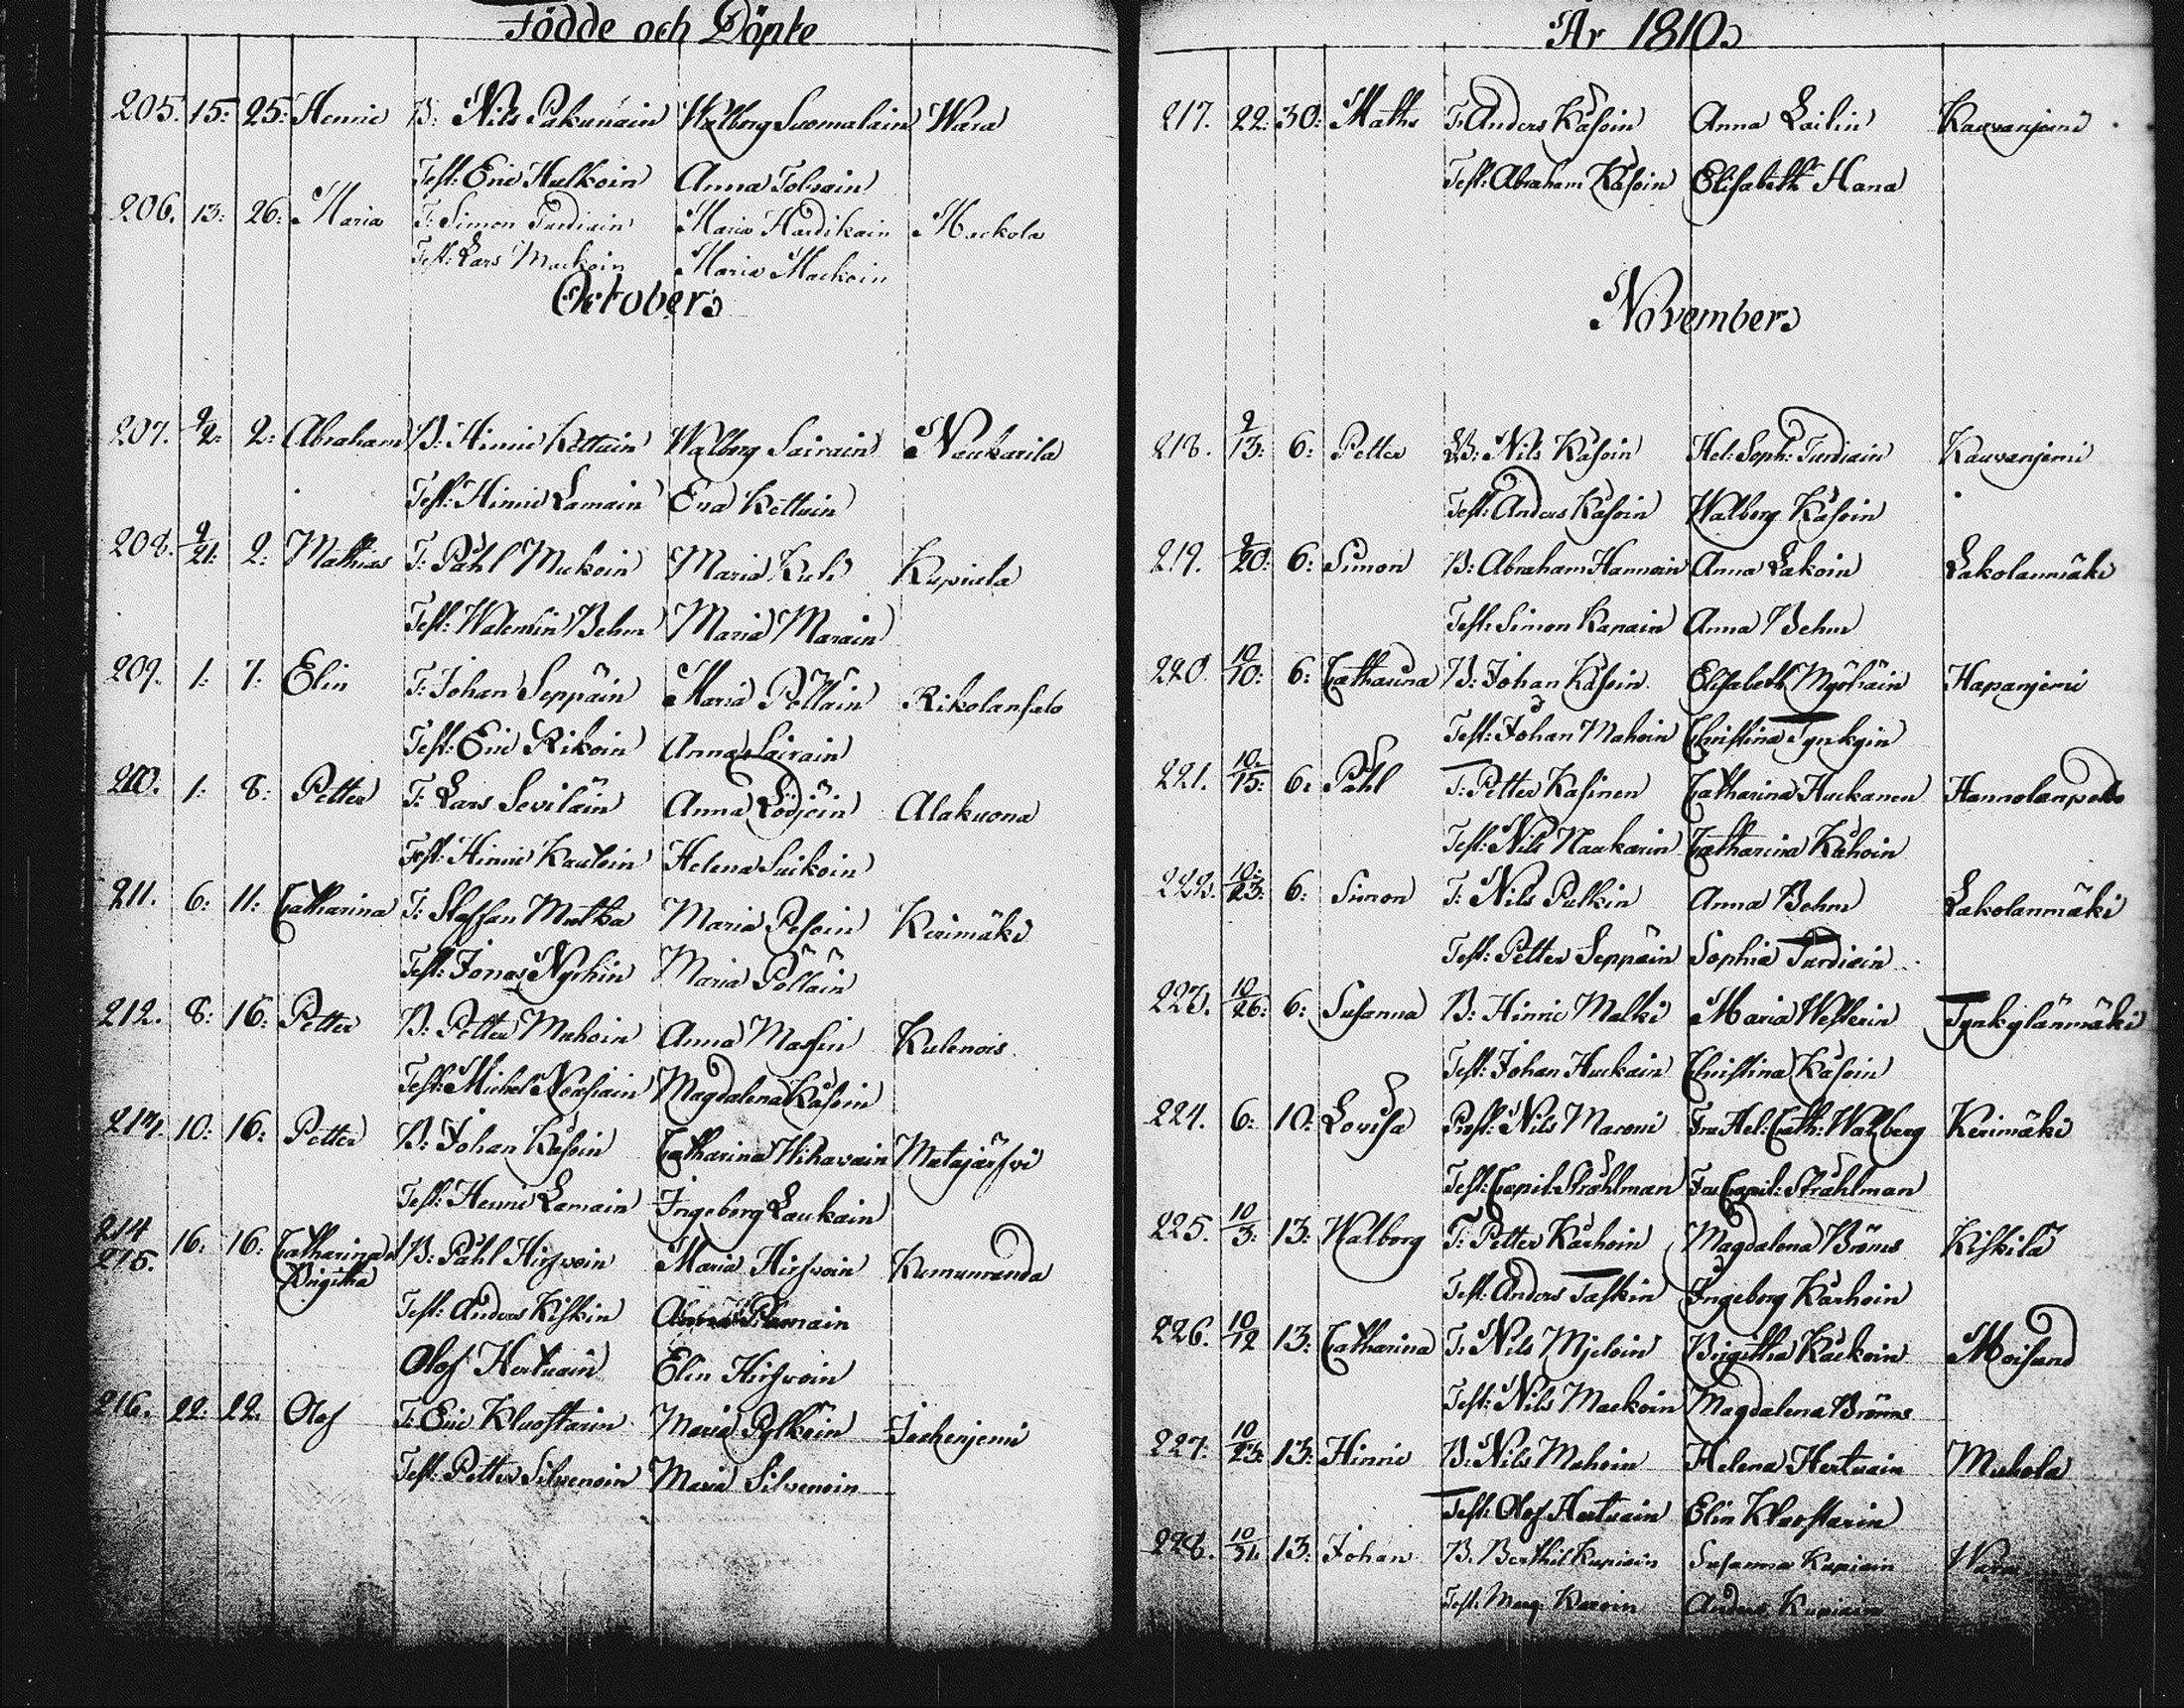 Födde och Döpte
205. 15: 25: Henric B: Nils Pakunain Walborg Suomalain Wara
Test: Eric Hulkoin Anna Tolvain
206. 13: 26: Maria T: Simon Turdiain Maria Hardikain Mackola
Test: Lars Mackoin Maria Mackoin
October
207. 9/2: 2: Abraham B: Hinric Kettuin Walborg Sairain Naukarila
Test: Hinric Lamain Eva Kettuin
208. 9/21: 2: Mathias T: Påhl Mukoin Maria Kuli Kupiala
Test: Walentin Behm Maria Marain
209. 1: 7: Elin T: Johan Seppäin Maria Pölläin Rikolansalo
Test: Eric Rikoin Anna Sairain
210. 1: 8: Petter T: Lars Seviläin Anna Lödjöin Alakuona
Test: Hinric Kautoin Helena Suikoin
211. 6: 11: Catharina T: Staffan Mutka Maria Pesoin Kerimäki
Test: Jonas Nyrhin Maria Pölläin
212. 8: 16: Petter B: Petter Muhoin Anna Massin Kulenois
Test: Michel Nousiain Magdalena Kåsoin
213. 10: 16: Petter B: Johan Kåsoin Catharina Wihavain Matajärfvi
Test: Henric Lamain Ingeborg Laukain
214 215. 16: 16: Catharina o Brigitha B: Påhl Hirfvoin Maria Hirfvoin Kumunranda
Test: Anders Kiskin
Olof Hertuain Elin Hirfvoin
216. 22: 22. Olof T: Eric Kluostarin Maria Pylköin Jouhenjemi
Test: Petter Silvenoin Maria Silvenoin
År 1810
217. 22: 30: Maths T: Anders Kåsoin Anna Lailin Kauvanjemi
Test: Abraham Kåsoin Elisabeth Hana
November
218. 9/13: 6: Petter B: Nils Kåsoin Hel: Soph: Turdiain Kauvanjemi
Test: Anders Kåsoin Walborg Kåsoin
219. 9/20: 6: Simon B: Abraham Hannoin Anna Lakoin Lakolanmäki
Test: Simon Kapain Anna Behm
220. 10/10: 6: Catharina B: Johan Kåsoin Elisabeth Myöhäin Hapanjemi
Test: Johan Muhoin Christina Tynkyin
221. 10/15: 6: Påhl T: Petter Kasinen Catharina Huckanen Hannolanpelto
Test: Nils Naukarin Catharina Kåhoin
222. 10/23: 6: Simon T: Nils Pulkin Anna Behm Lakolanmäki
Test: Petter Seppäin Sophia Turdiain
223. 10/26: 6: Susanna B: Hinric Malki Maria Westerin Tynkylänmäki
Test: Johan Huckain Christina Kåsoin
224. 6: 10: Lovisa Prost: Nils Maconi Fru Hel: Cath: Walberg Kerimäki
Test: Capit: Stråhlman Fru Capit: Stråhlman
225. 10/3: 13: Walborg T: Petter Karhoin Magdalena Bröms Kiskilä
Test: Anders Taskin Ingeborg Karhoin
226. 10/12 13: Catharina T: Nils Mjeloin Birgitha Kackoin Moisund
Test: Nils Mackoin Magdalena Bröms
227. 10/23: 13: Hinric B: Nils Muhoin Helena Hertuain Muhola
Test: Olof Hertuain Elin Kluostarin
228. 10/31. 13: Johan B. Berthil Kupiain Susanna Kupiain Wara
Test: Marg Karoin Anders Kupiain